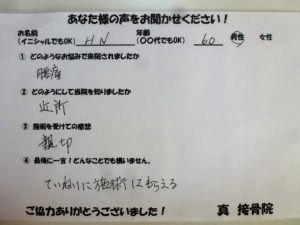 あなた様の声をお聞かせください！
お名前　年齢
（イニシャルでもOK）　HN　（〇〇代でもOK）　60　男性　女性
① どのようなお悩みで来院されましたか
腰痛
② どのようにして当院を知りましたか
近所
③ 施術を受けての感想
親切
④ 最後に一言！どんなことでも構いません。
ていねいに施術してもらえる
ご協力ありがとうございました！　真 接骨院